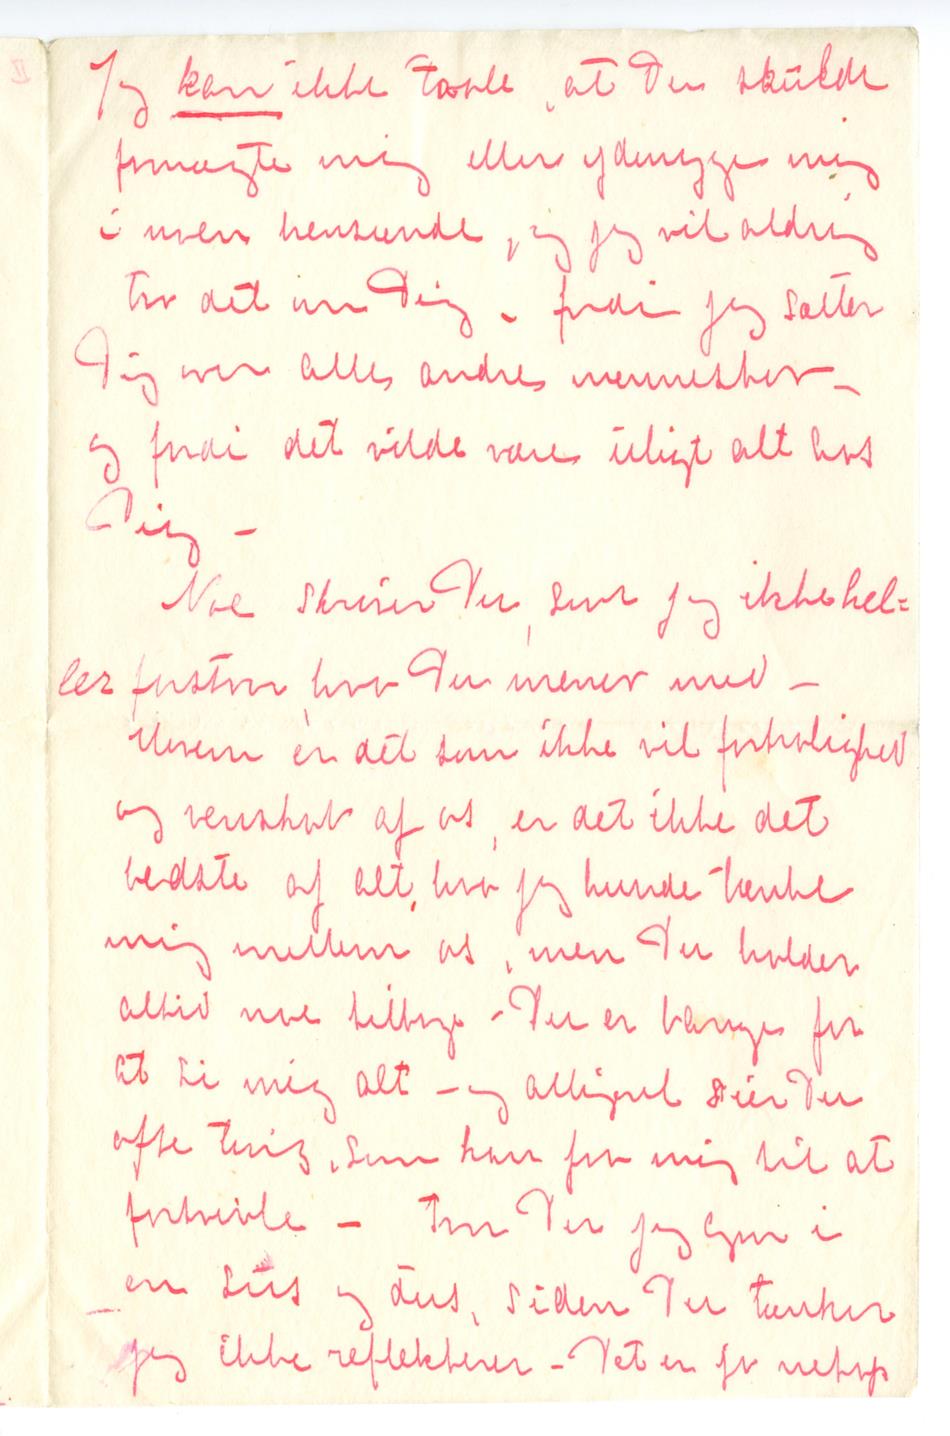 Jeg kan ikke taale, at Du skulde
foragte mig eller ydmyge mig
i noen henseende, og jeg vil aldrig
tro det om Dig – fordi jeg sætter
Dig over alle andre mennesker –
og fordi det vilde være uligt alt hos
Dig –
Noe skriver Du, som jeg ikke hel=
ler forstaar, hva Du mener med –
Hvem er det som ikke vil fortrolighed
og venskab af os, er det ikke det
bedste af alt, hva jeg kunde tænke
mig mellem os, men Du holder
altid noe tilbage – Du er bange for
at si mig alt – og alligevel sier Du
ofte ting, som kan faa mig til at
fortvivle – Tror Du jeg lever i
en sus og dus, siden Du tænker
jeg ikke reflekterer – Det er jo netop